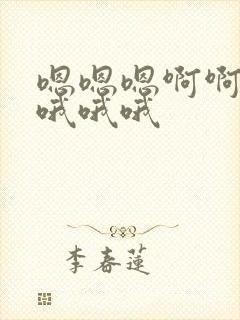 嗯嗯嗯啊啊
哦哦哦
李春蓮